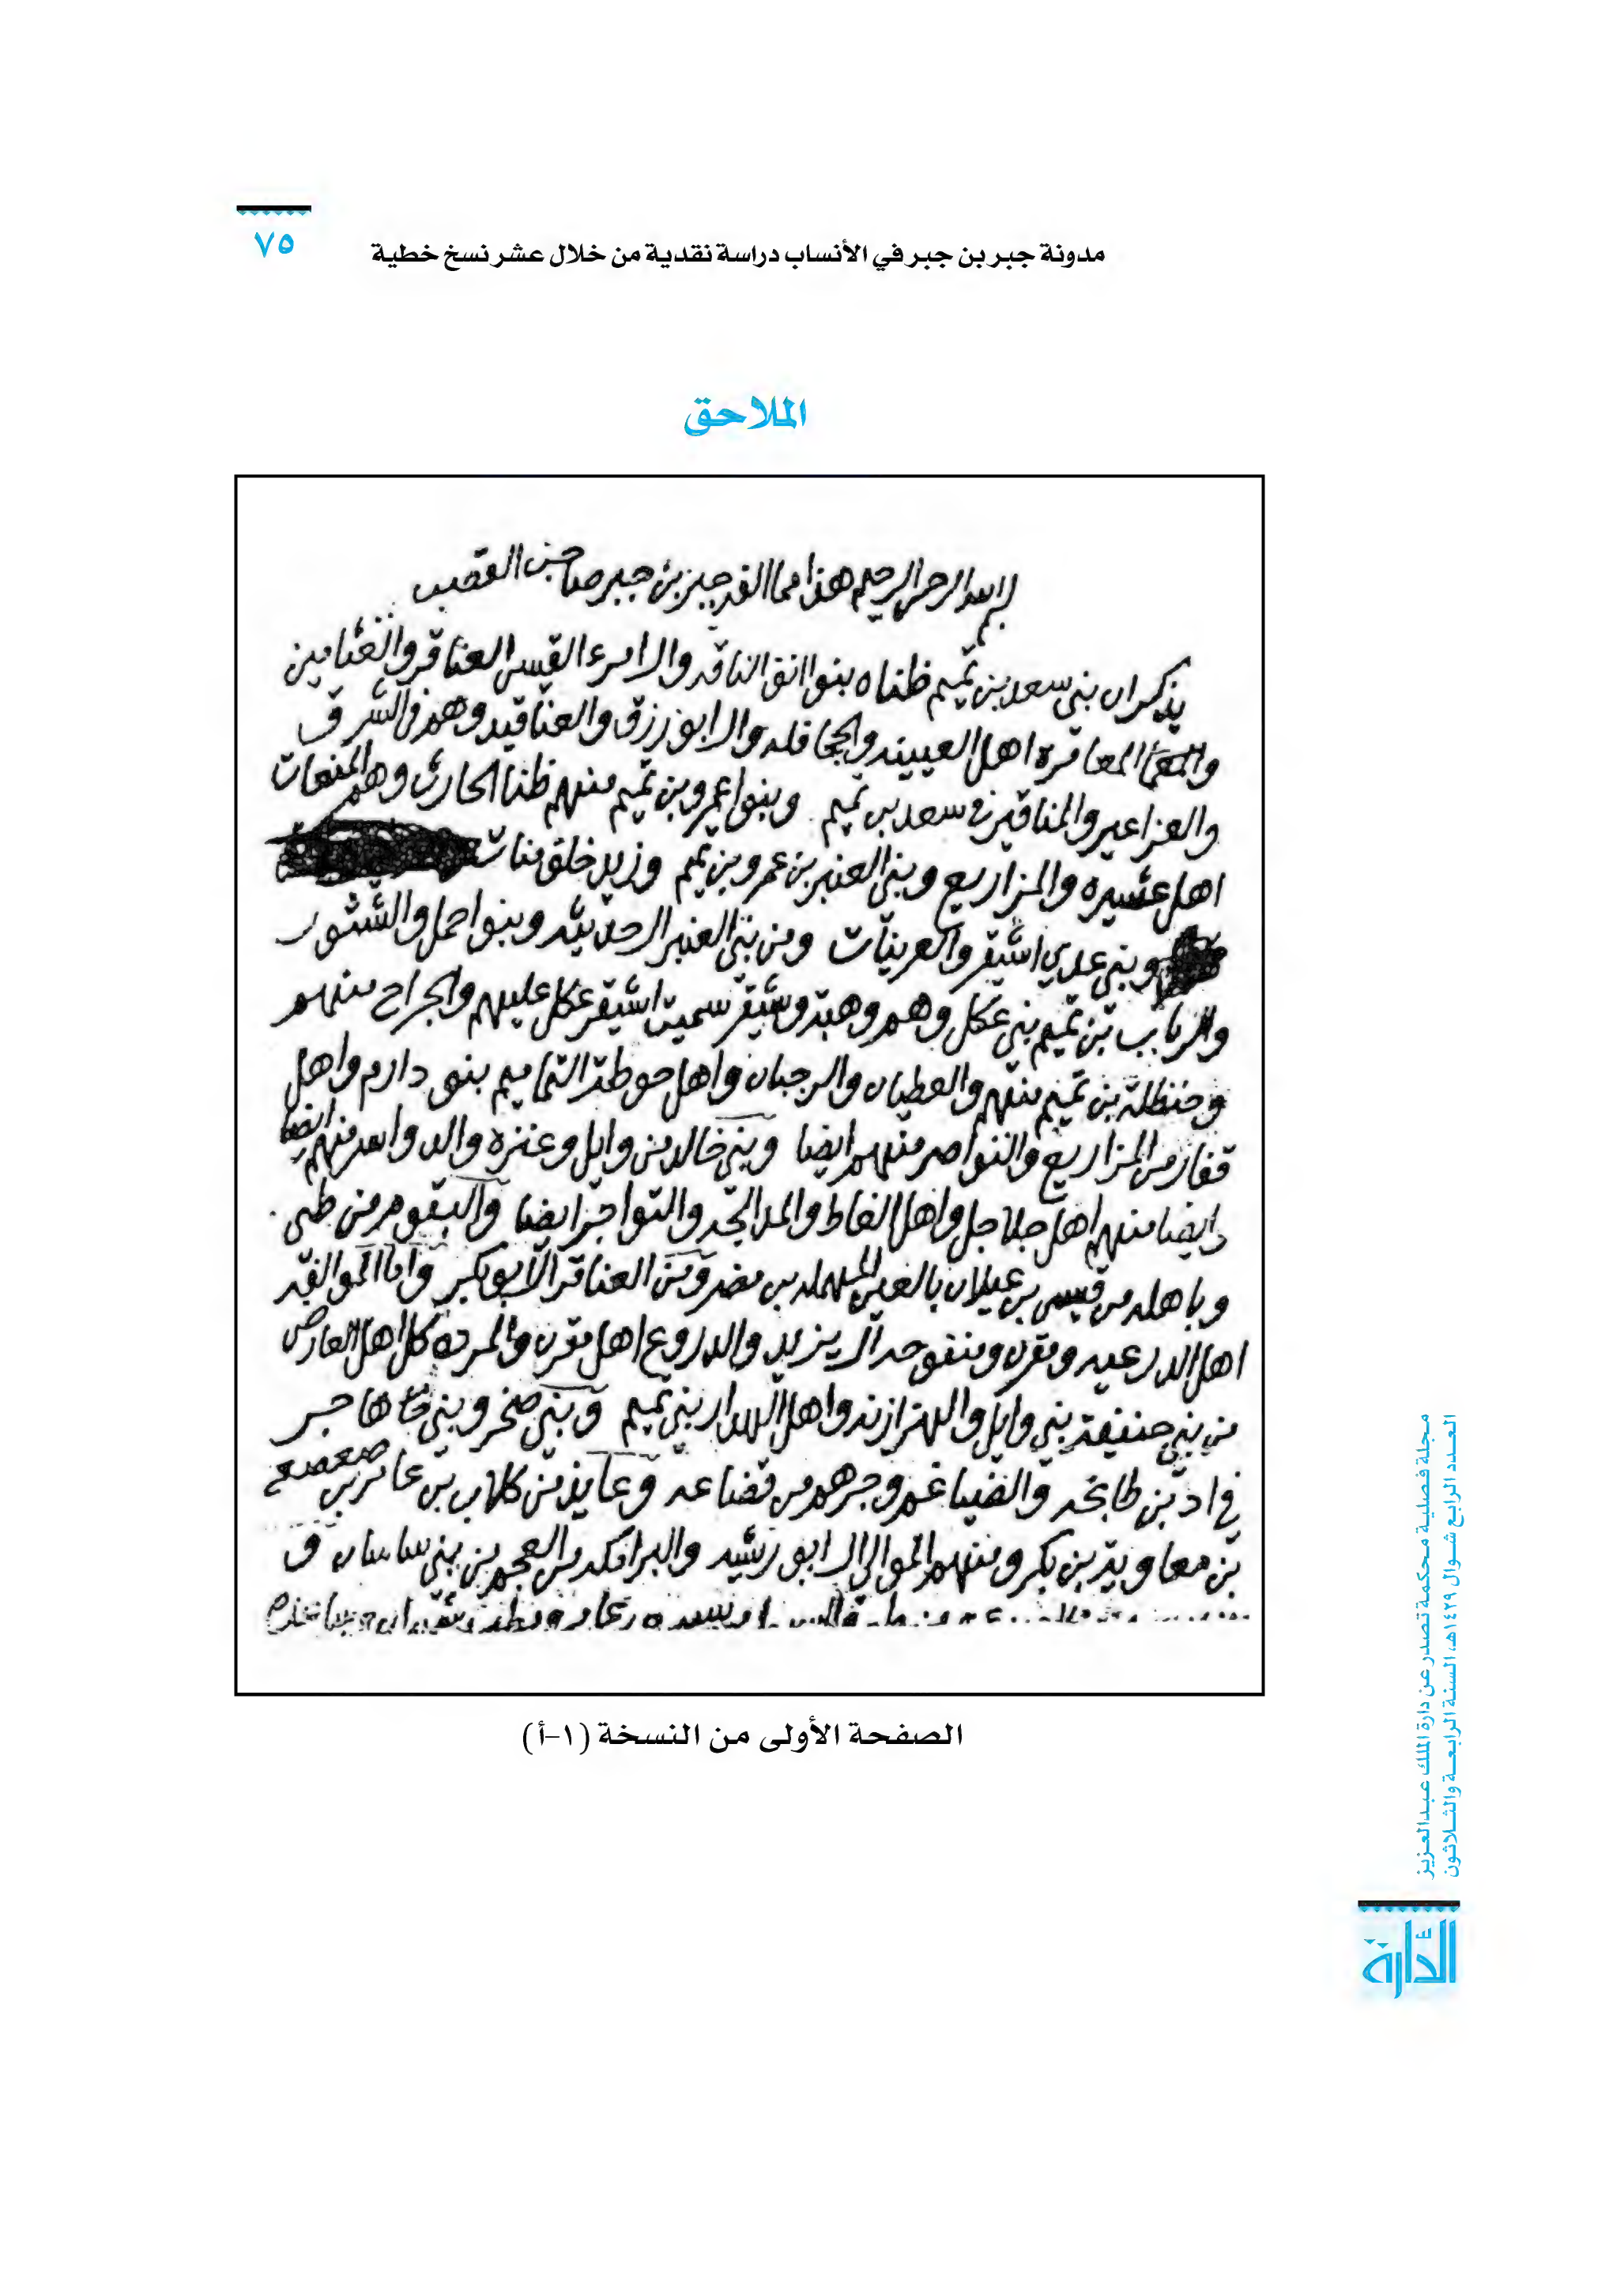 ٧٥
مدونة جبر بن جبر في الأنساب دراسة نقدية من خلال عشر نسخ خطية
الملاحق
بسم الله الرحمن الرحيم هذا مما الفه جبر بن جبر صاحب القصب
يذكر ان بني سعد بن تميم ظناه بنوا انف الناقه والا امرء القيس العناقر والغنامين
المعاقره اهل العيينه والحجاقله والا ابو رزق والعناقيد وهم في الشرق
والعزاعير والمناقير في سعد بن تميم وبنوا عمرو بن تميم منهم ظنا الحارث وهم المنعات
اهل عشيره والمزاريع وبني العنبر بن عمرو بن تميم وزيد خلق منات
وبني عدي اشيقر والعرينات ومن بني العنبر الرحديثه وبنوا حمل والشثور
والرباب بن تميم بني عكل وهم وهبة وشيقر سميت اشيقر عكل عليهم والجراح منهم
وحنظلة بن تميم منهم والعطيان والرجبان واهل حوطة التماميم بنو دارم واهل
قفار من المزاريع والنواصر منهم ايضا وبني خالد من وايل وعنزه والدواسر منهم ايضا
وايضا منهم اهل جلاجل واهل الغاط والمدالجه والتواجر ايضا والبقوم من طي
وباهله من قيس بن عيلان بالعين المهمله بن مضر ومن العناقر الا ابو بكير واما الموالفه
اهل الدرعيه ومقرن ومنفوحه ال يزيد والدروع اهل مقرن والمرده كل اهل العارض
من بني حنيفة بني وايل والهزازنه واهل الهدار بني تميم وبني صخر وبني هاجر
في اد بن طابخه والضياغم وجرهم من قضاعه وعايذ من كلاب بن عامر بن صعصعه
بن معاوية بن بكر ومنهم الموالي ال ابو رشيد والبرامكه من العجم من بني ساسان
الصفحة الأولى من النسخة (١-أ)
مجلة فصلية محكمة تصدر عن دارة الملك عبدالعزيز
العدد الرابع شوال ١٤٢٩هـ، السنة الرابعة والثلاثون
الدارة